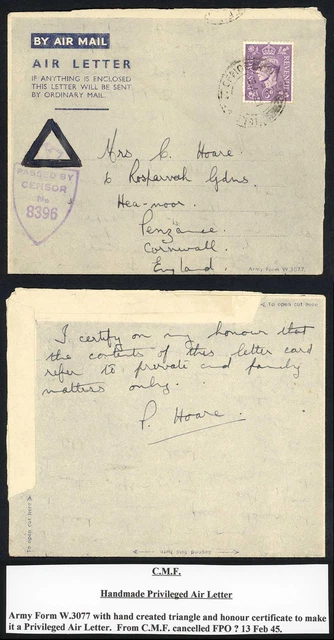 BY AIR MAIL
AIR LETTER
IF ANYTHING IS ENCLOSED
THIS LETTER WILL BE SENT
BY ORDINARY MAIL.
PASSED BY
CENSOR
No
8396
Mrs C. Hoare
6 Rosparvah Gdns.
Hea-moor.
Penzance.
Cornwall.
England.
Army Form W.3077.
To open cut here
I certify on my honour that
the contents of this letter card
refer to private and family
matters only.
P. Hoare.
To open cut here
C.M.F.
Handmade Privileged Air Letter
Army Form W.3077 with hand created triangle and honour certificate to make
it a Privileged Air Letter. From C.M.F. cancelled FPO ? 13 Feb 45.